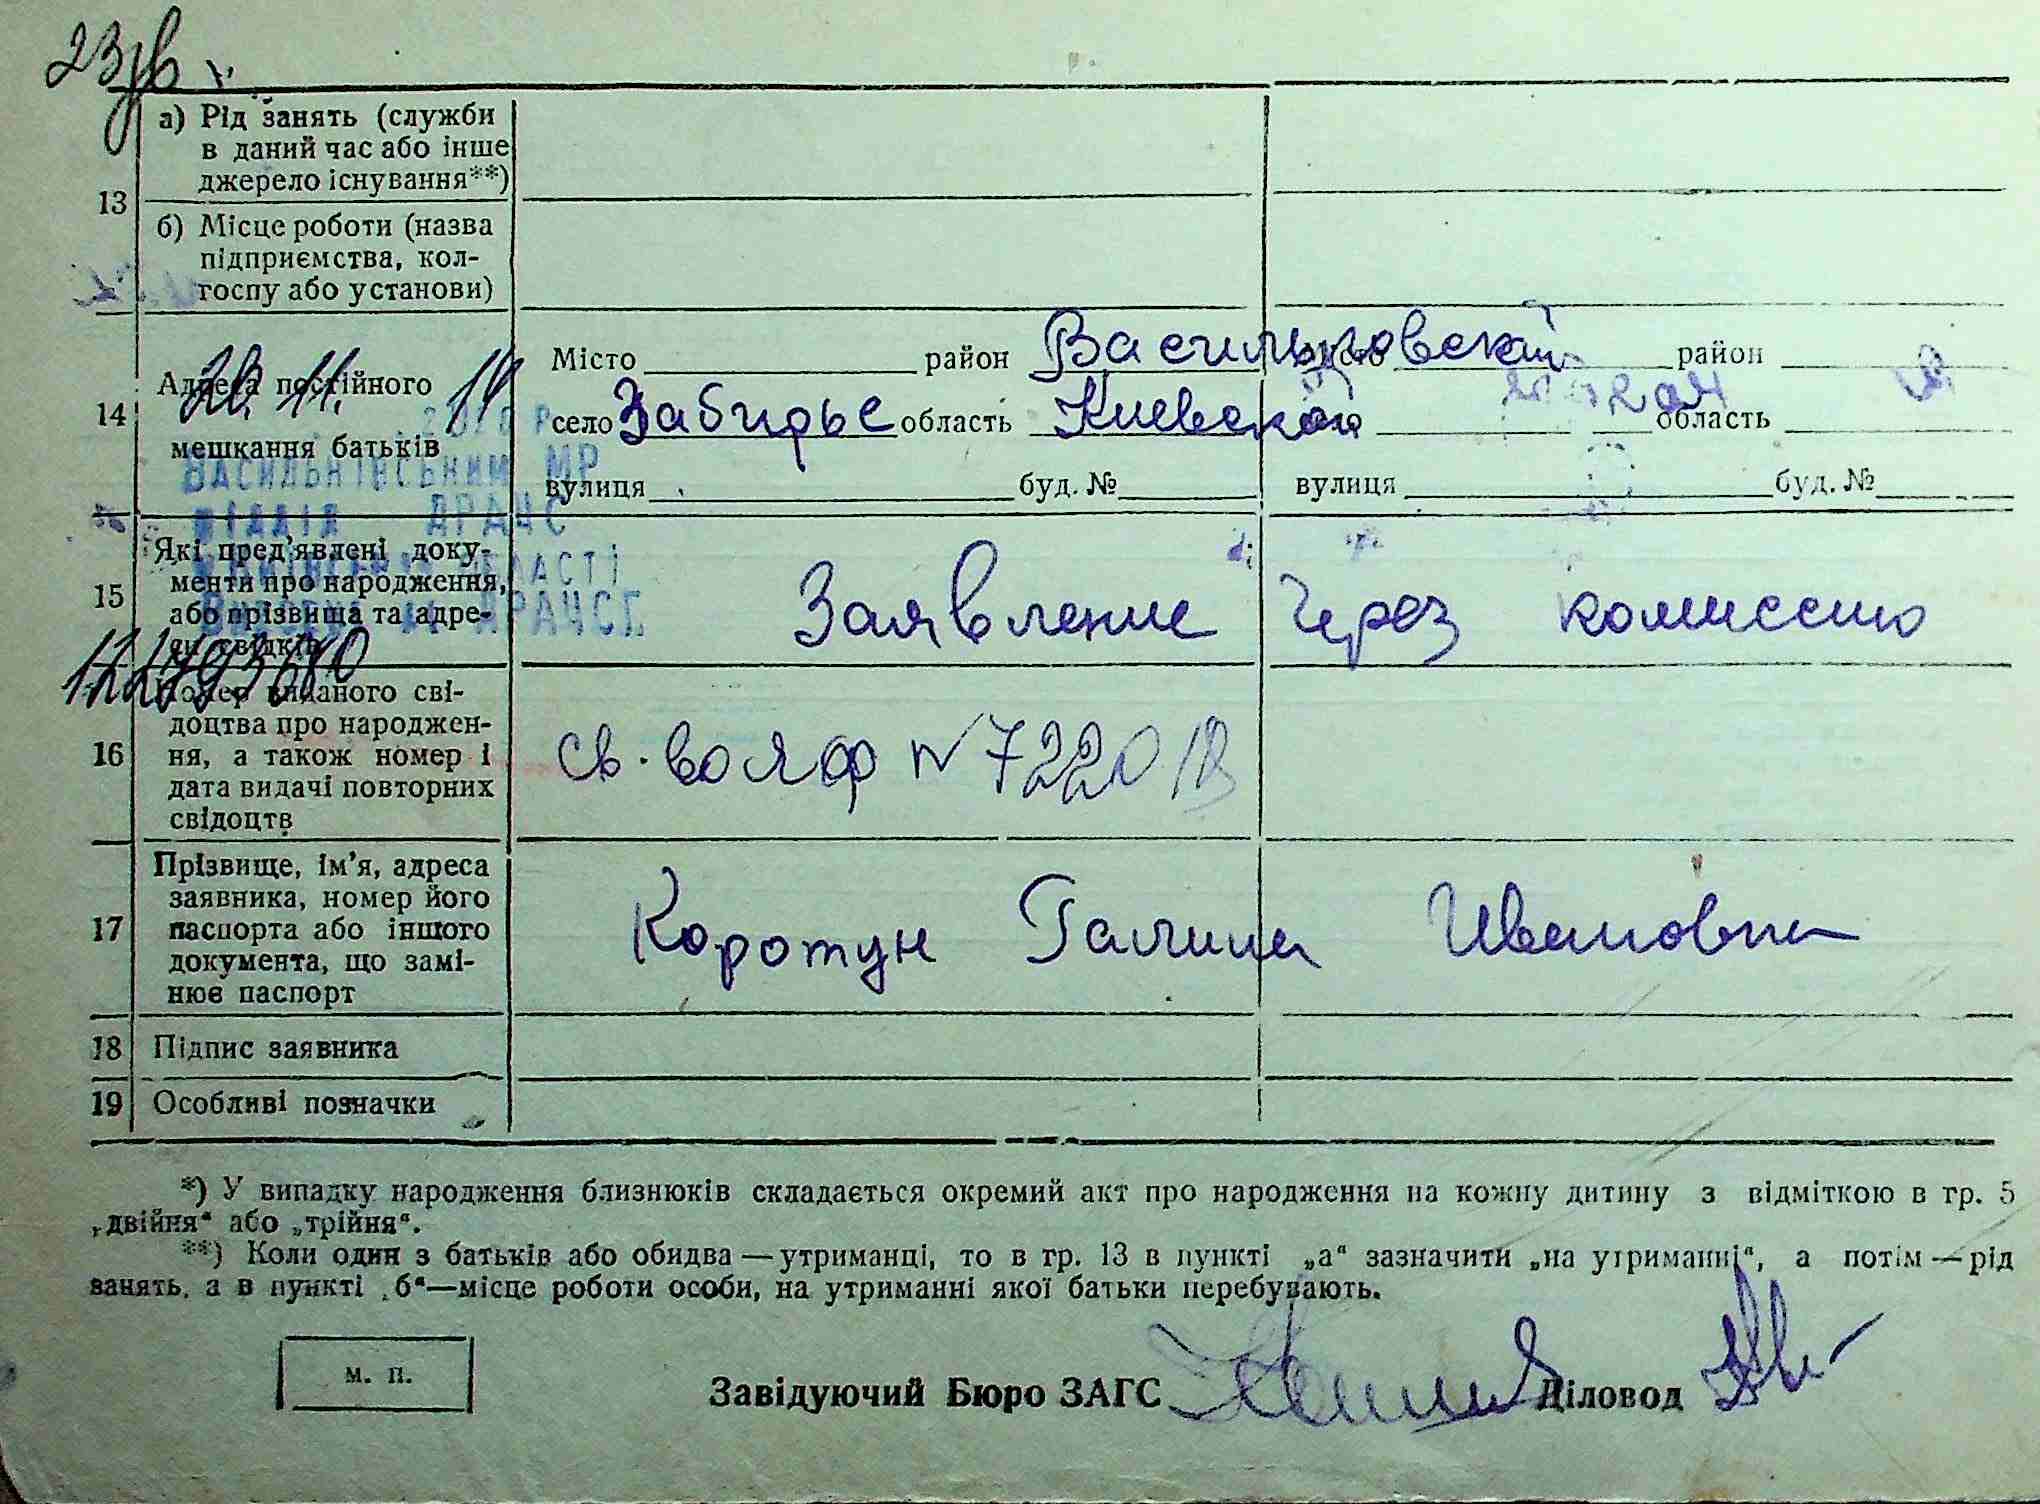 23
а) Рід занять (служби
в даний час або інше
джерело існування**)
13
б) Місце роботи (назва
підприємства, кол-
госпу або установи)
Місто район Васильковский місто район
14 Адреса постійного 20. 11. 19
село Забирье область Киевской область
мешкання батьків
вулиця буд. № вулиця буд. №
ВАСИЛЬКІВСЬКИМ МР
ВІДДІЛ ДРАЦС
ОБЛАСТІ
15 Які пред'явлені доку-
менти про народження,
або прізвища та адре-
си свідків
Заявление через комиссию
16 Номер виданого сві-
доцтва про народжен-
ня, а також номер і
дата видачі повторних
свідоцтв
св-во ЯФ N 7220
17 Прізвище, ім'я, адреса
заявника, номер його
паспорта або іншого
документа, що замі-
нює паспорт
Коротун Галина Ивановна
18 Підпис заявника
19 Особливі позначки
*) У випадку народження близнюків складається окремий акт про народження на кожну дитину з відміткою в гр. 5
„двійня“ або „трійня“.
**) Коли один з батьків або обидва — утриманці, то в гр. 13 в пункті „а“ зазначити „на утриманні“, а потім — рід
занять, а в пункті „б“—місце роботи особи, на утриманні якої батьки перебувають.
м. п.
Завідуючий Бюро ЗАГС Діловод